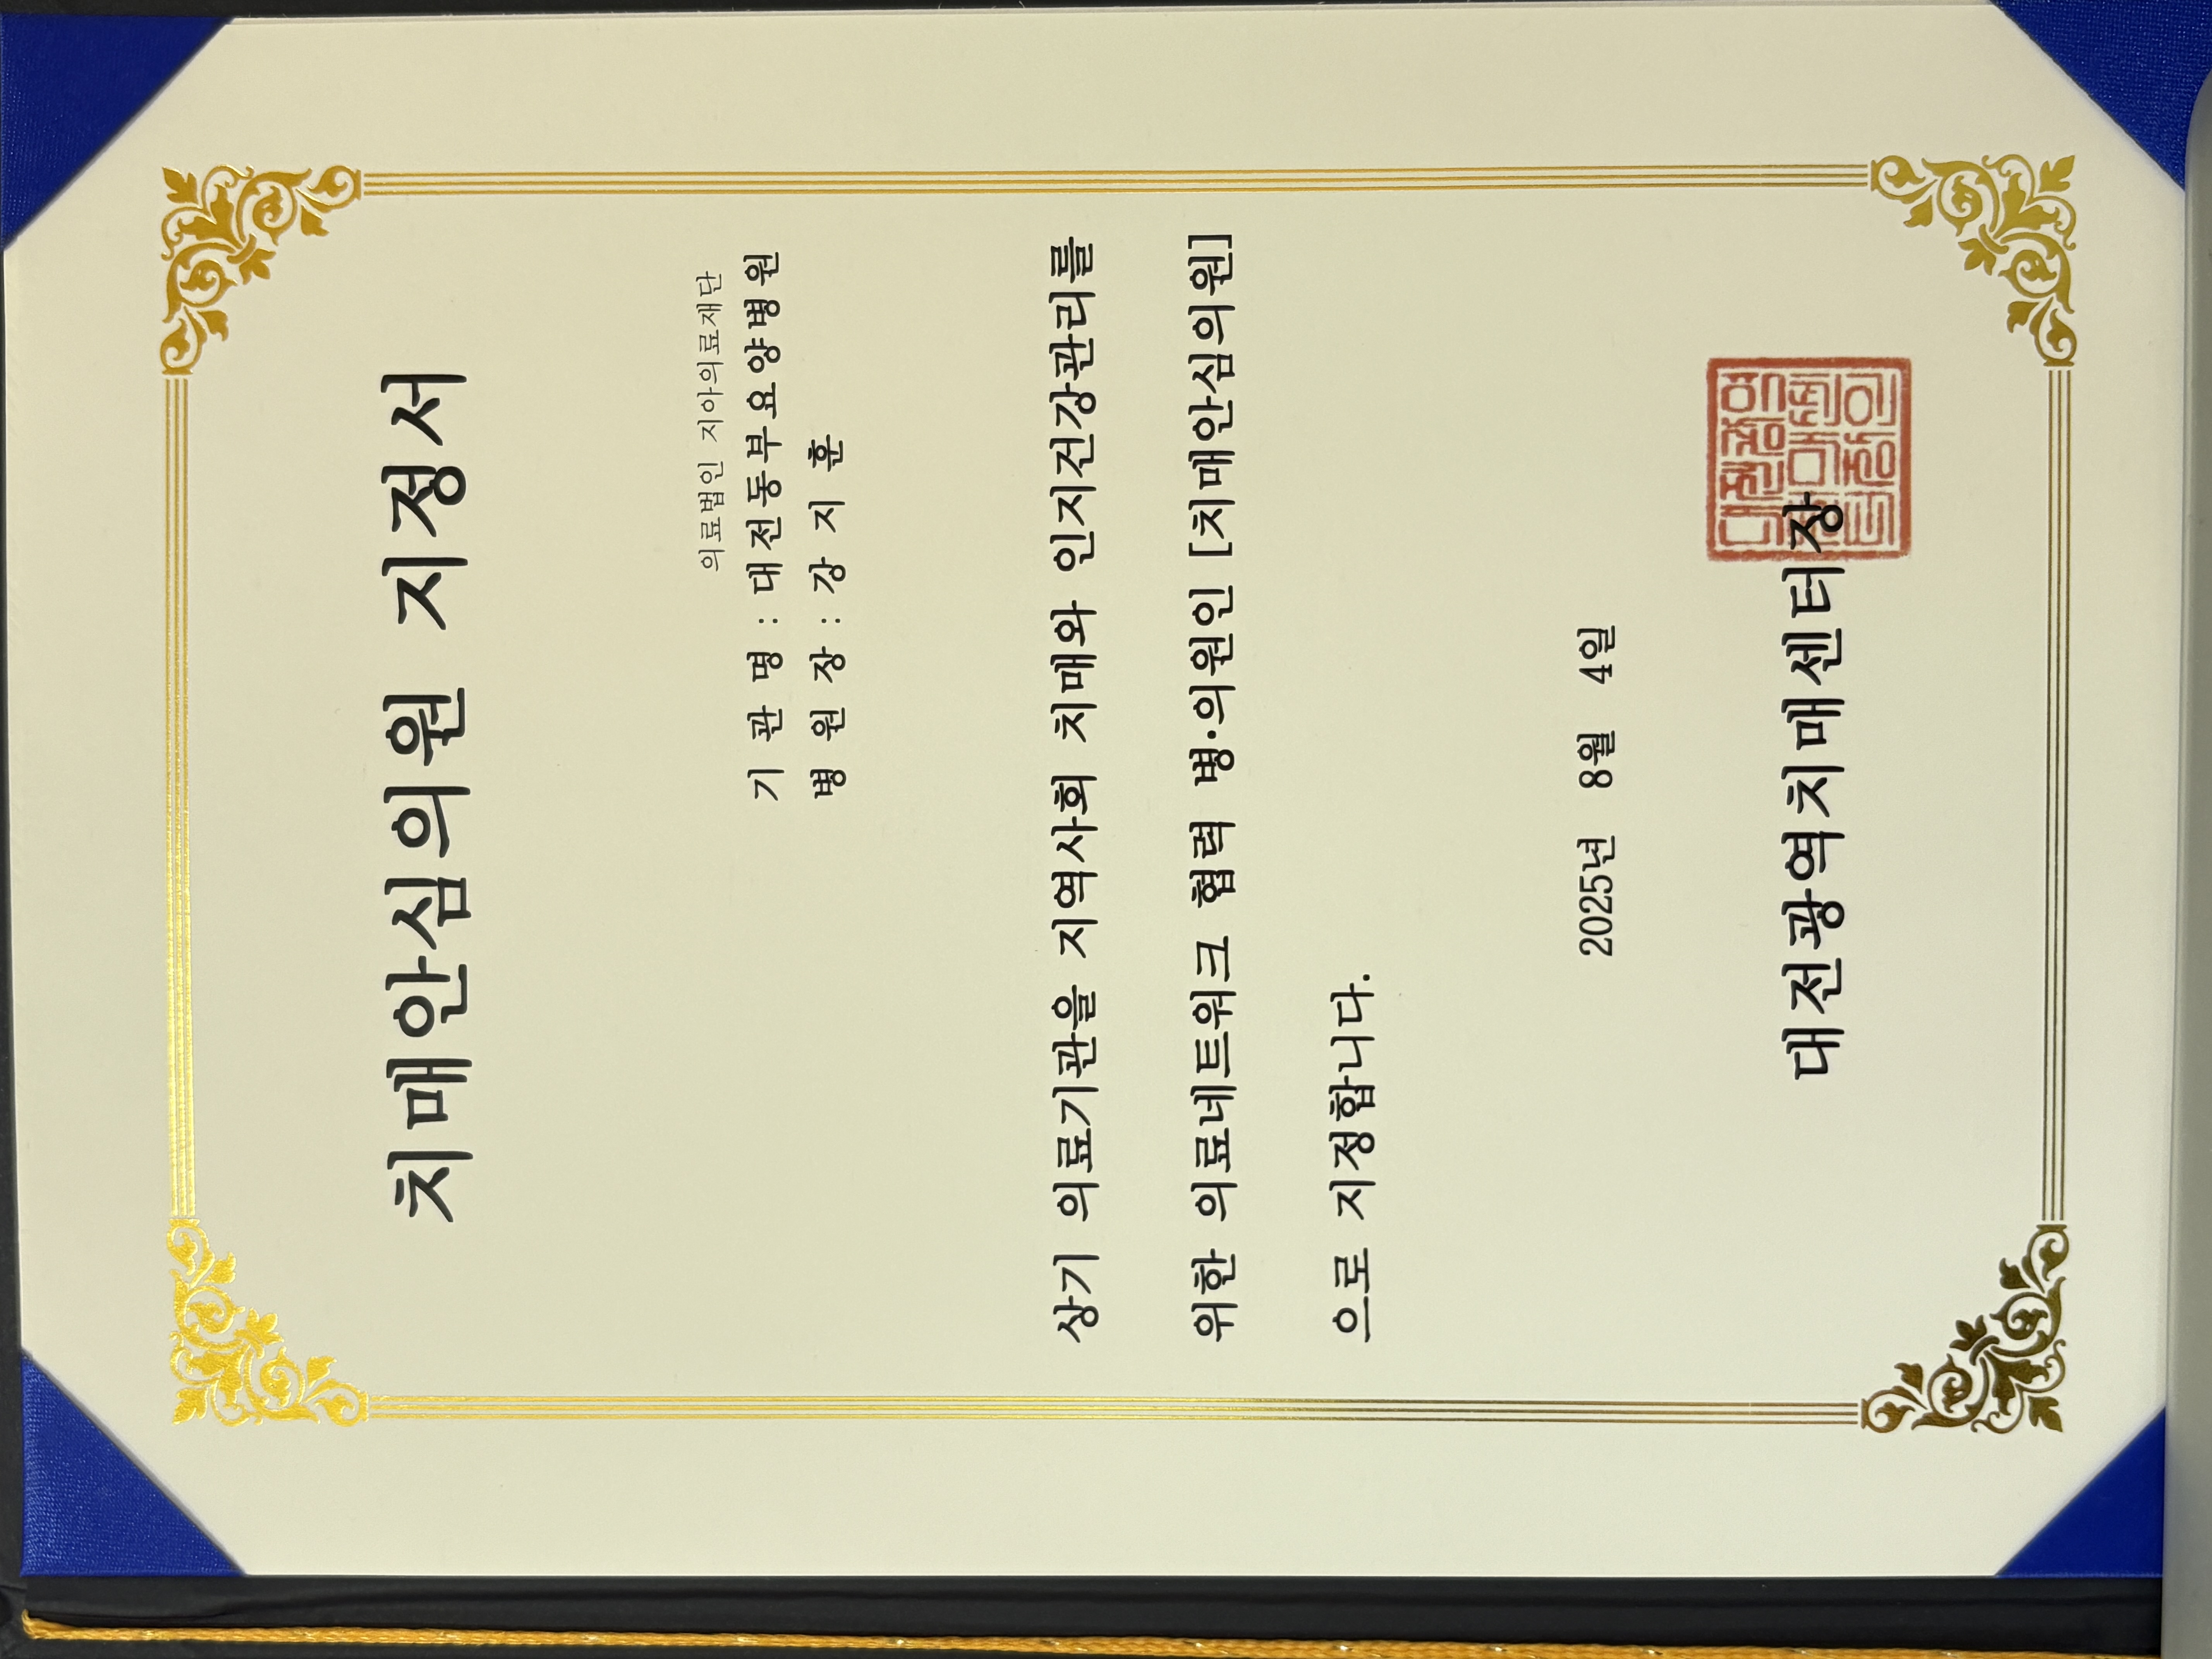 치매안심의원 지정서
의료법인 지아의료재단
기 관 명 : 대전동부요양병원
병 원 장 : 강 지 훈
상기 의료기관을 지역사회 치매와 인지건강관리를
위한 의료네트워크 협력 병·의원인 [치매안심의원]
으로 지정합니다.
2025년 8월 4일
대전광역치매센터장